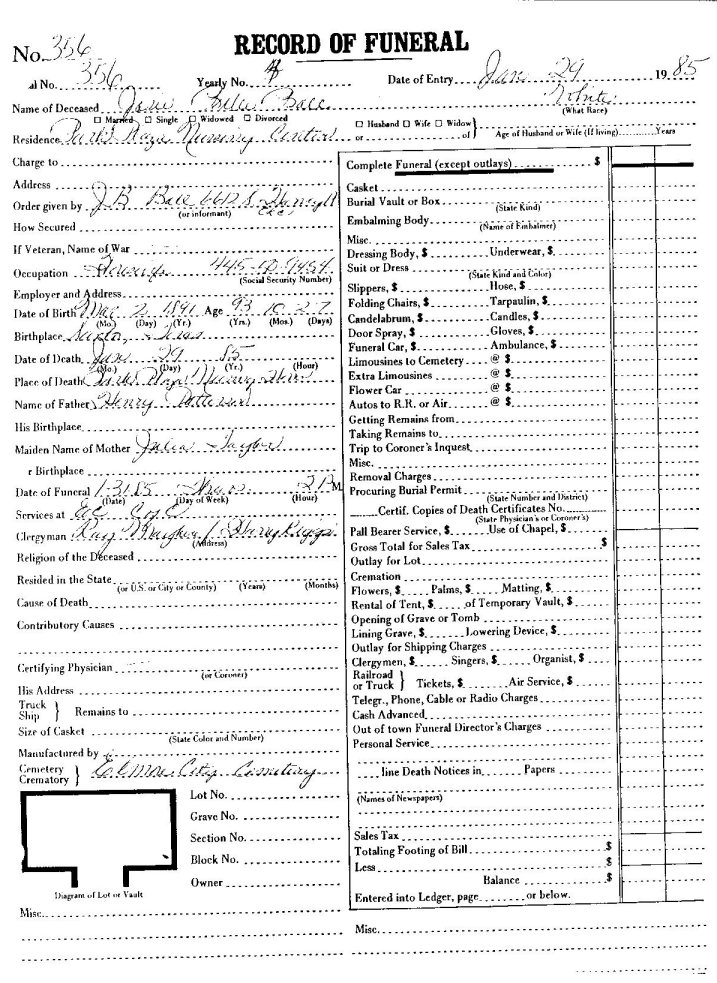 RECORD OF FUNERAL
No. 356
al No. 356 Yearly No. Date of Entry Jan 29 19 85
Name of Deceased Ball White
(What Race)
☐ Married ☐ Single ☐ Widowed ☐ Divorced ☐ Husband ☐ Wife ☐ Widow
Residence Nursing Center or of Age of Husband or Wife (If living) Years
Charge to
Address
Order given by J B Ball 6612 S.
(or informant)
How Secured
If Veteran, Name of War
Occupation 445
(Social Security Number)
Employer and Address
Date of Birth Mar 2 1891 Age 93 10 27
(Mo.) (Day) (Yr.) (Yrs.) (Mos.) (Days)
Birthplace Texas
Date of Death Jan 29 85
(Mo.) (Day) (Yr.) (Hour)
Place of Death Nursing
Name of Father Henry Patterson
His Birthplace
Maiden Name of Mother Julia Taylor
r Birthplace
Date of Funeral 1-31-85 Thurs 2 P M
(Date) (Day of Week) (Hour)
Services at
Clergyman Ray Vaughn / Harry Riggs
(Address)
Religion of the Deceased
Resided in the State
(or U.S. or City or County) (Years) (Months)
Cause of Death
Contributory Causes
Certifying Physician
(or Coroner)
His Address
Truck
Ship } Remains to
Size of Casket
(State Color and Number)
Manufactured by
Cemetery
Crematory } Elmore City Cemetery
Lot No.
Grave No.
Section No.
Block No.
Owner
Diagram of Lot or Vault
Misc.
Complete Funeral (except outlays) $
Casket
Burial Vault or Box
(State Kind)
Embalming Body
(Name of Embalmer)
Misc.
Dressing Body, $ Underwear, $
Suit or Dress
(State Kind and Color)
Slippers, $ Hose, $
Folding Chairs, $ Tarpaulin, $
Candelabrum, $ Candles, $
Door Spray, $ Gloves, $
Funeral Car, $ Ambulance, $
Limousines to Cemetery @ $
Extra Limousines @ $
Flower Car @ $
Autos to R.R. or Air @ $
Getting Remains from
Taking Remains to
Trip to Coroner's Inquest
Misc.
Removal Charges
Procuring Burial Permit
(State Number and District)
Certif. Copies of Death Certificates No.
(State Physician's or Coroner's)
Pall Bearer Service, $ Use of Chapel, $
Gross Total for Sales Tax $
Outlay for Lot
Cremation
Flowers, $ Palms, $ Matting, $
Rental of Tent, $ of Temporary Vault, $
Opening of Grave or Tomb
Lining Grave, $ Lowering Device, $
Outlay for Shipping Charges
Clergymen, $ Singers, $ Organist, $
Railroad
or Truck } Tickets, $ Air Service, $
Telegr., Phone, Cable or Radio Charges
Cash Advanced
Out of town Funeral Director's Charges
Personal Service
line Death Notices in Papers
(Names of Newspapers)
Sales Tax
Totaling Footing of Bill $
Less $
Balance $
Entered into Ledger, page or below.
Misc.